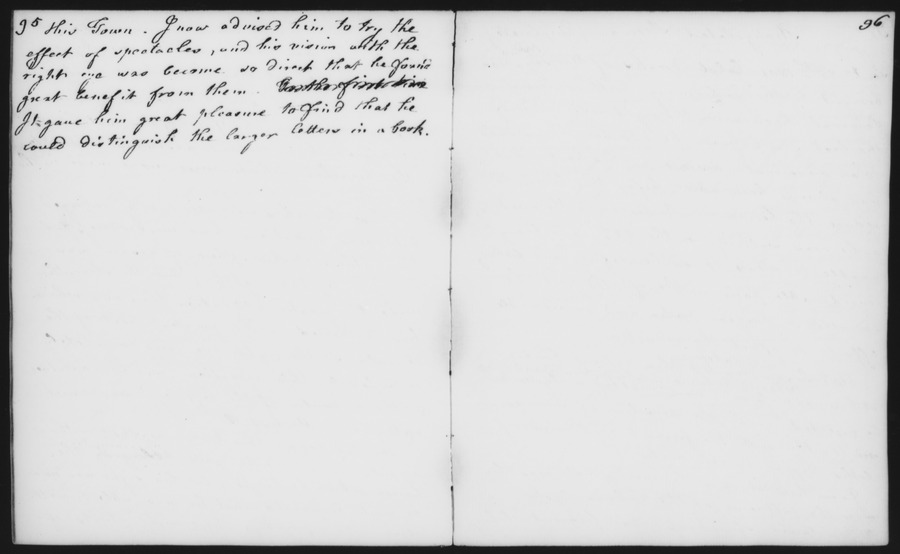 95 this Town. I now advised him to try the
effect of spectacles, and his vision with the
right eye was become so direct that he found
great benefit from them. For the first time
It gave him great pleasure to find that he
could distinguish the larger letters in a book.
96